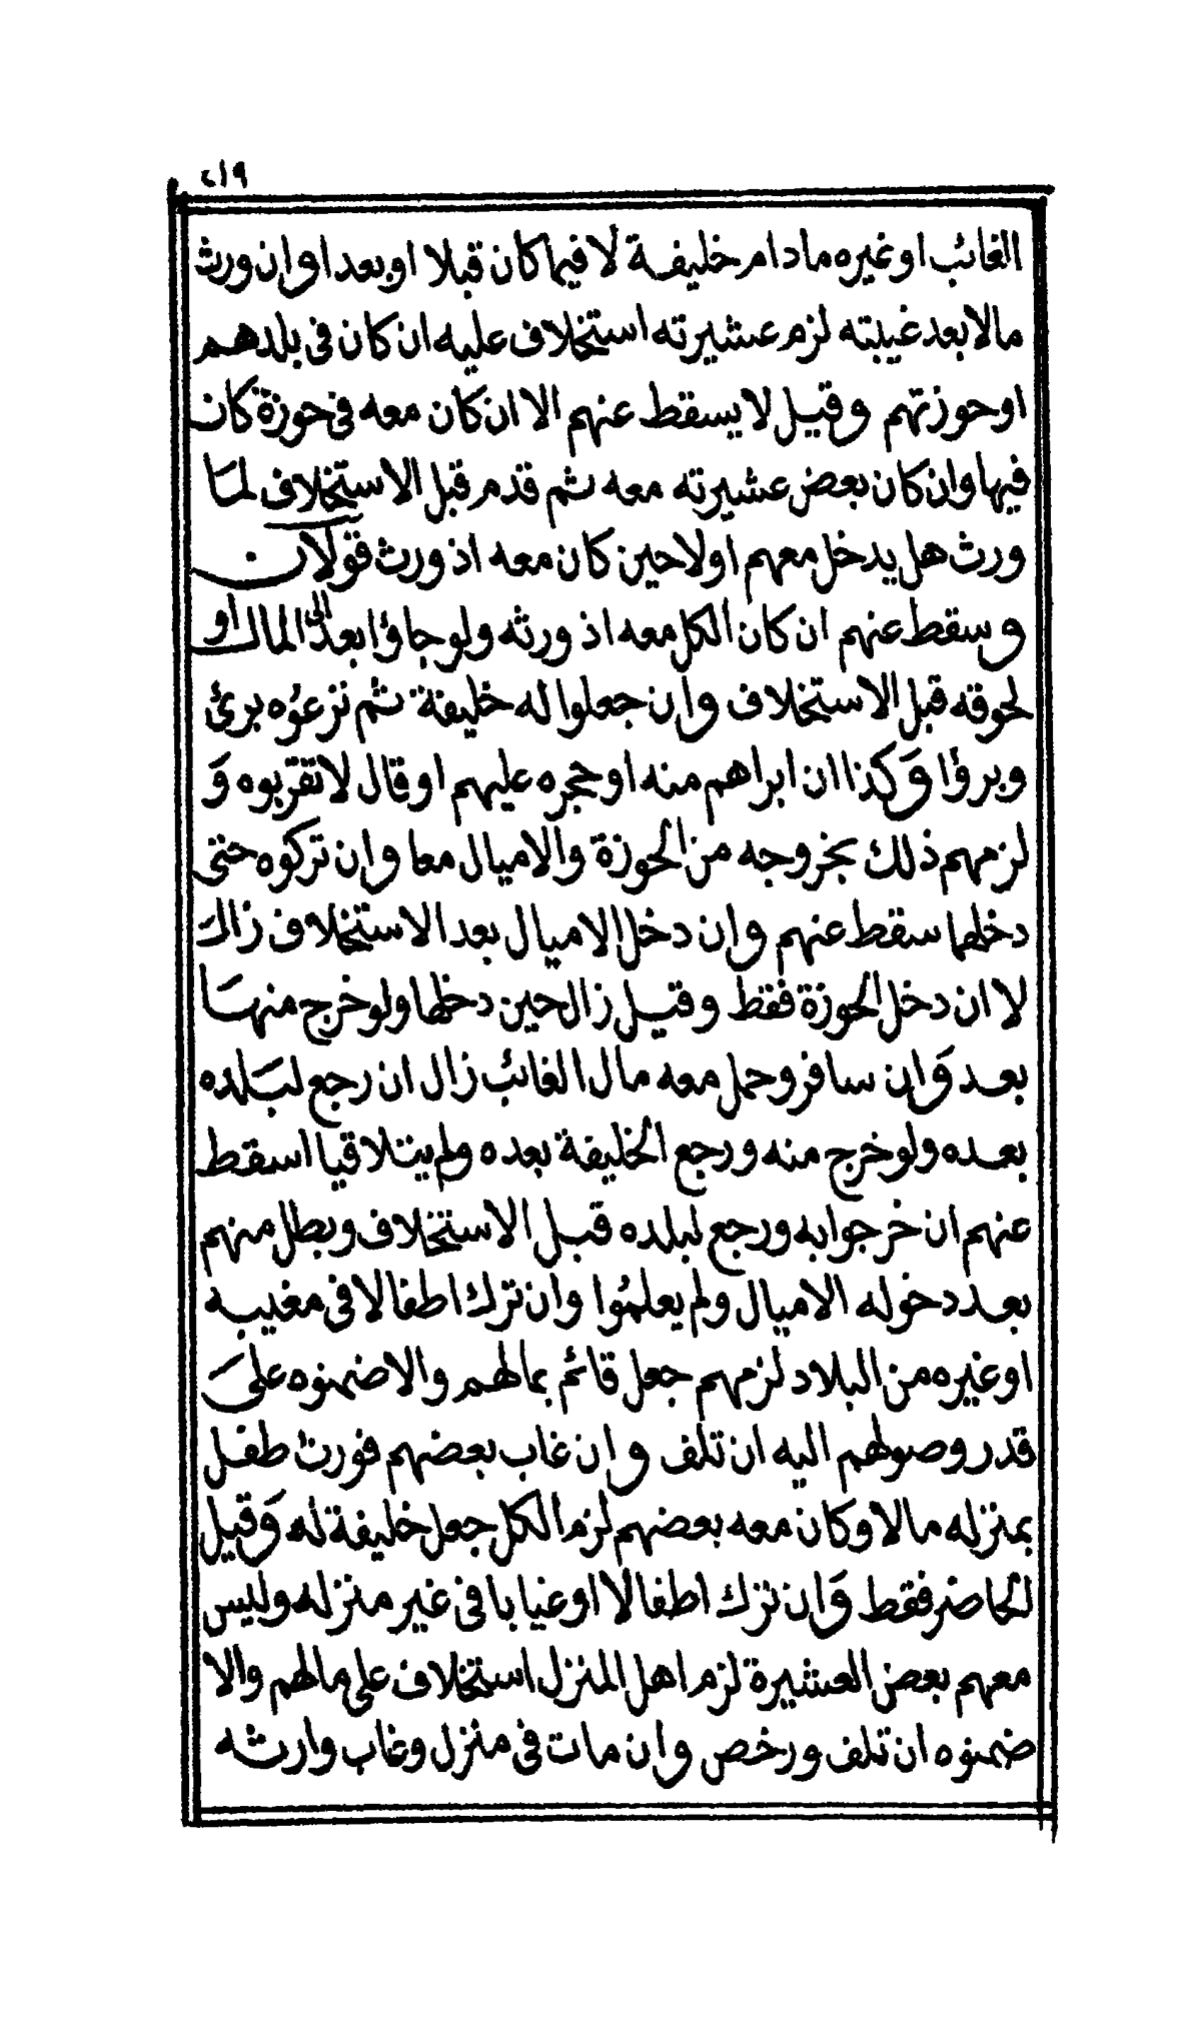 ٢١٩
الغائب او غيره مادام خليفة لا فيما كان قبلا او بعد او ان ورث
مالا بعد غيبته لزم عشيرته استخلاف عليه ان كان فى بلدهم
او حوزتهم وقيل لا يسقط عنهم الا ان كان معه فى حوزة كان
فيها وان كان بعض عشيرته معه ثم قدم قبل الاستخلاف لما
ورث هل يدخل معهم اولا حين كان معه اذ ورث قولان
وسقط عنهم ان كان الكل معه اذ ورثه ولو جاؤا بعد الى المال او
لحوقه قبل الاستخلاف وان جعلوا له خليفة ثم نزعوه برئ
وبرؤا وكذا ان ابراهم منه او حجره عليهم او قال لا تقربوه و
لزمهم ذلك بخروجه من الحوزة والاميال معا وان تركوه حتى
دخلها سقط عنهم وان دخل الاميال بعد الاستخلاف زال
لا ان دخل الحوزة فقط وقيل زال حين دخلها ولو خرج منها
بعد وان سافر وحمل معه مال الغائب زال ان رجع لبلده
بعده ولو خرج منه ورجع الخليفة بعده ولم يتلاقيا اسقط
عنهم ان خرجوا به ورجع لبلده قبل الاستخلاف وبطل منهم
بعد دخوله الاميال ولم يعلموا وان ترك اطفالا فى مغيبه
او غيره من البلاد لزمهم جعل قائم بمالهم والا ضمنوه على
قدر وصولهم اليه ان تلف وان غاب بعضهم فورث طفل
بمنزله مالا وكان معه بعضهم لزم الكل جعل خليفة له وقيل
الحاضر فقط وان ترك اطفالا او غيابا فى غير منزله وليس
معهم بعض العشيرة لزم اهل المنزل استخلاف على مالهم والا
ضمنوه ان تلف ورخص وان مات فى منزل وغاب وارثه